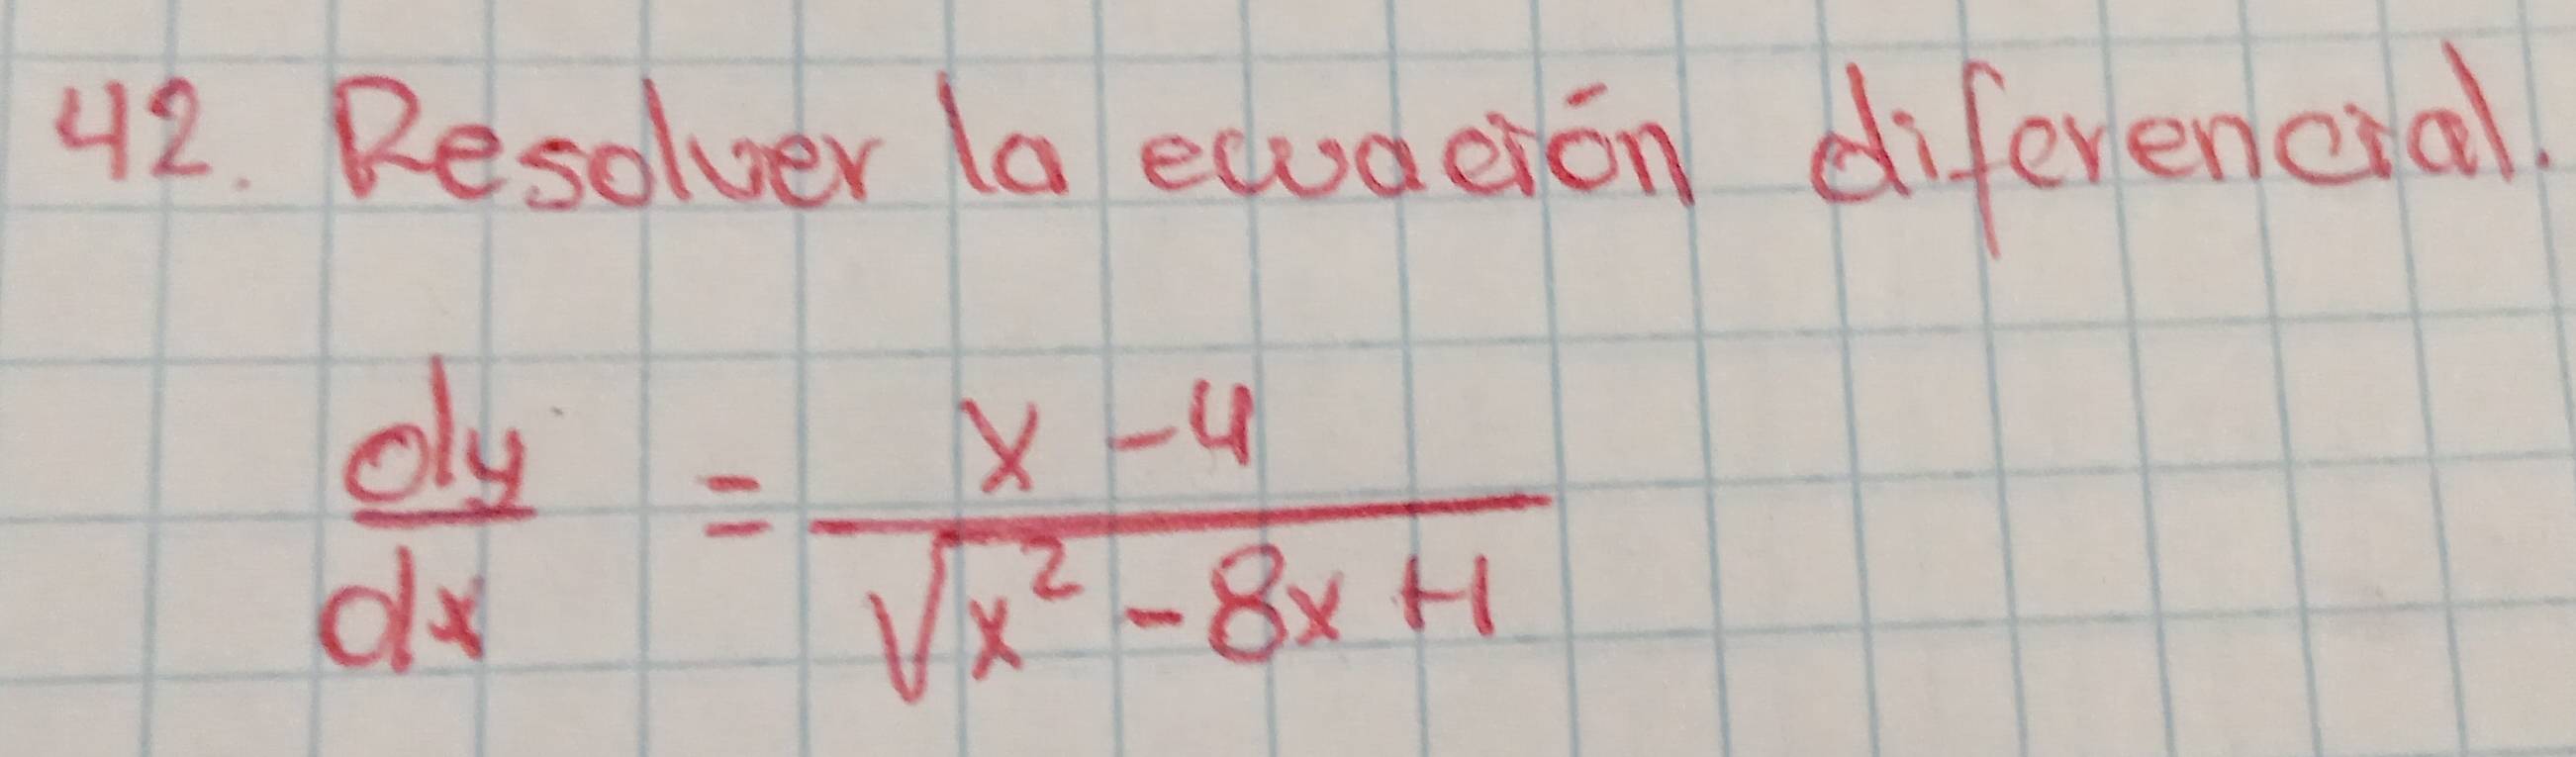 42. Resolver la ecuación diferencial.
dy/dx = x - 4 / √x² - 8x + 1